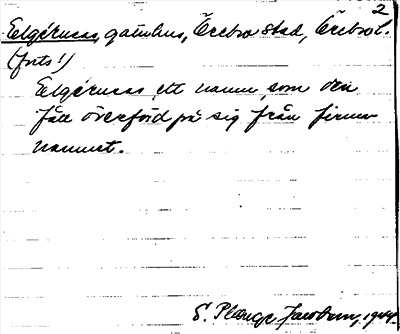 2
Elgérusas, gatuhus, Örebro stad, Örebro l.
(forts!)
Elgérusas, ett namn, som den
fått överförd på sig från firma-
namnet.
S. Plange Jacobson, 1944.